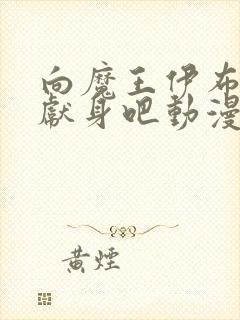 向魔王伊布
獻身吧動漫
黃煙